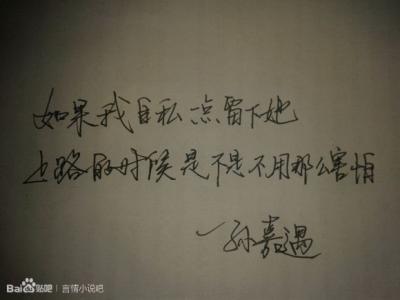 如果我自私点留下她
上路的时候是不是不用那么害怕
—孙嘉遇
Baidu贴吧 | 言情小说吧